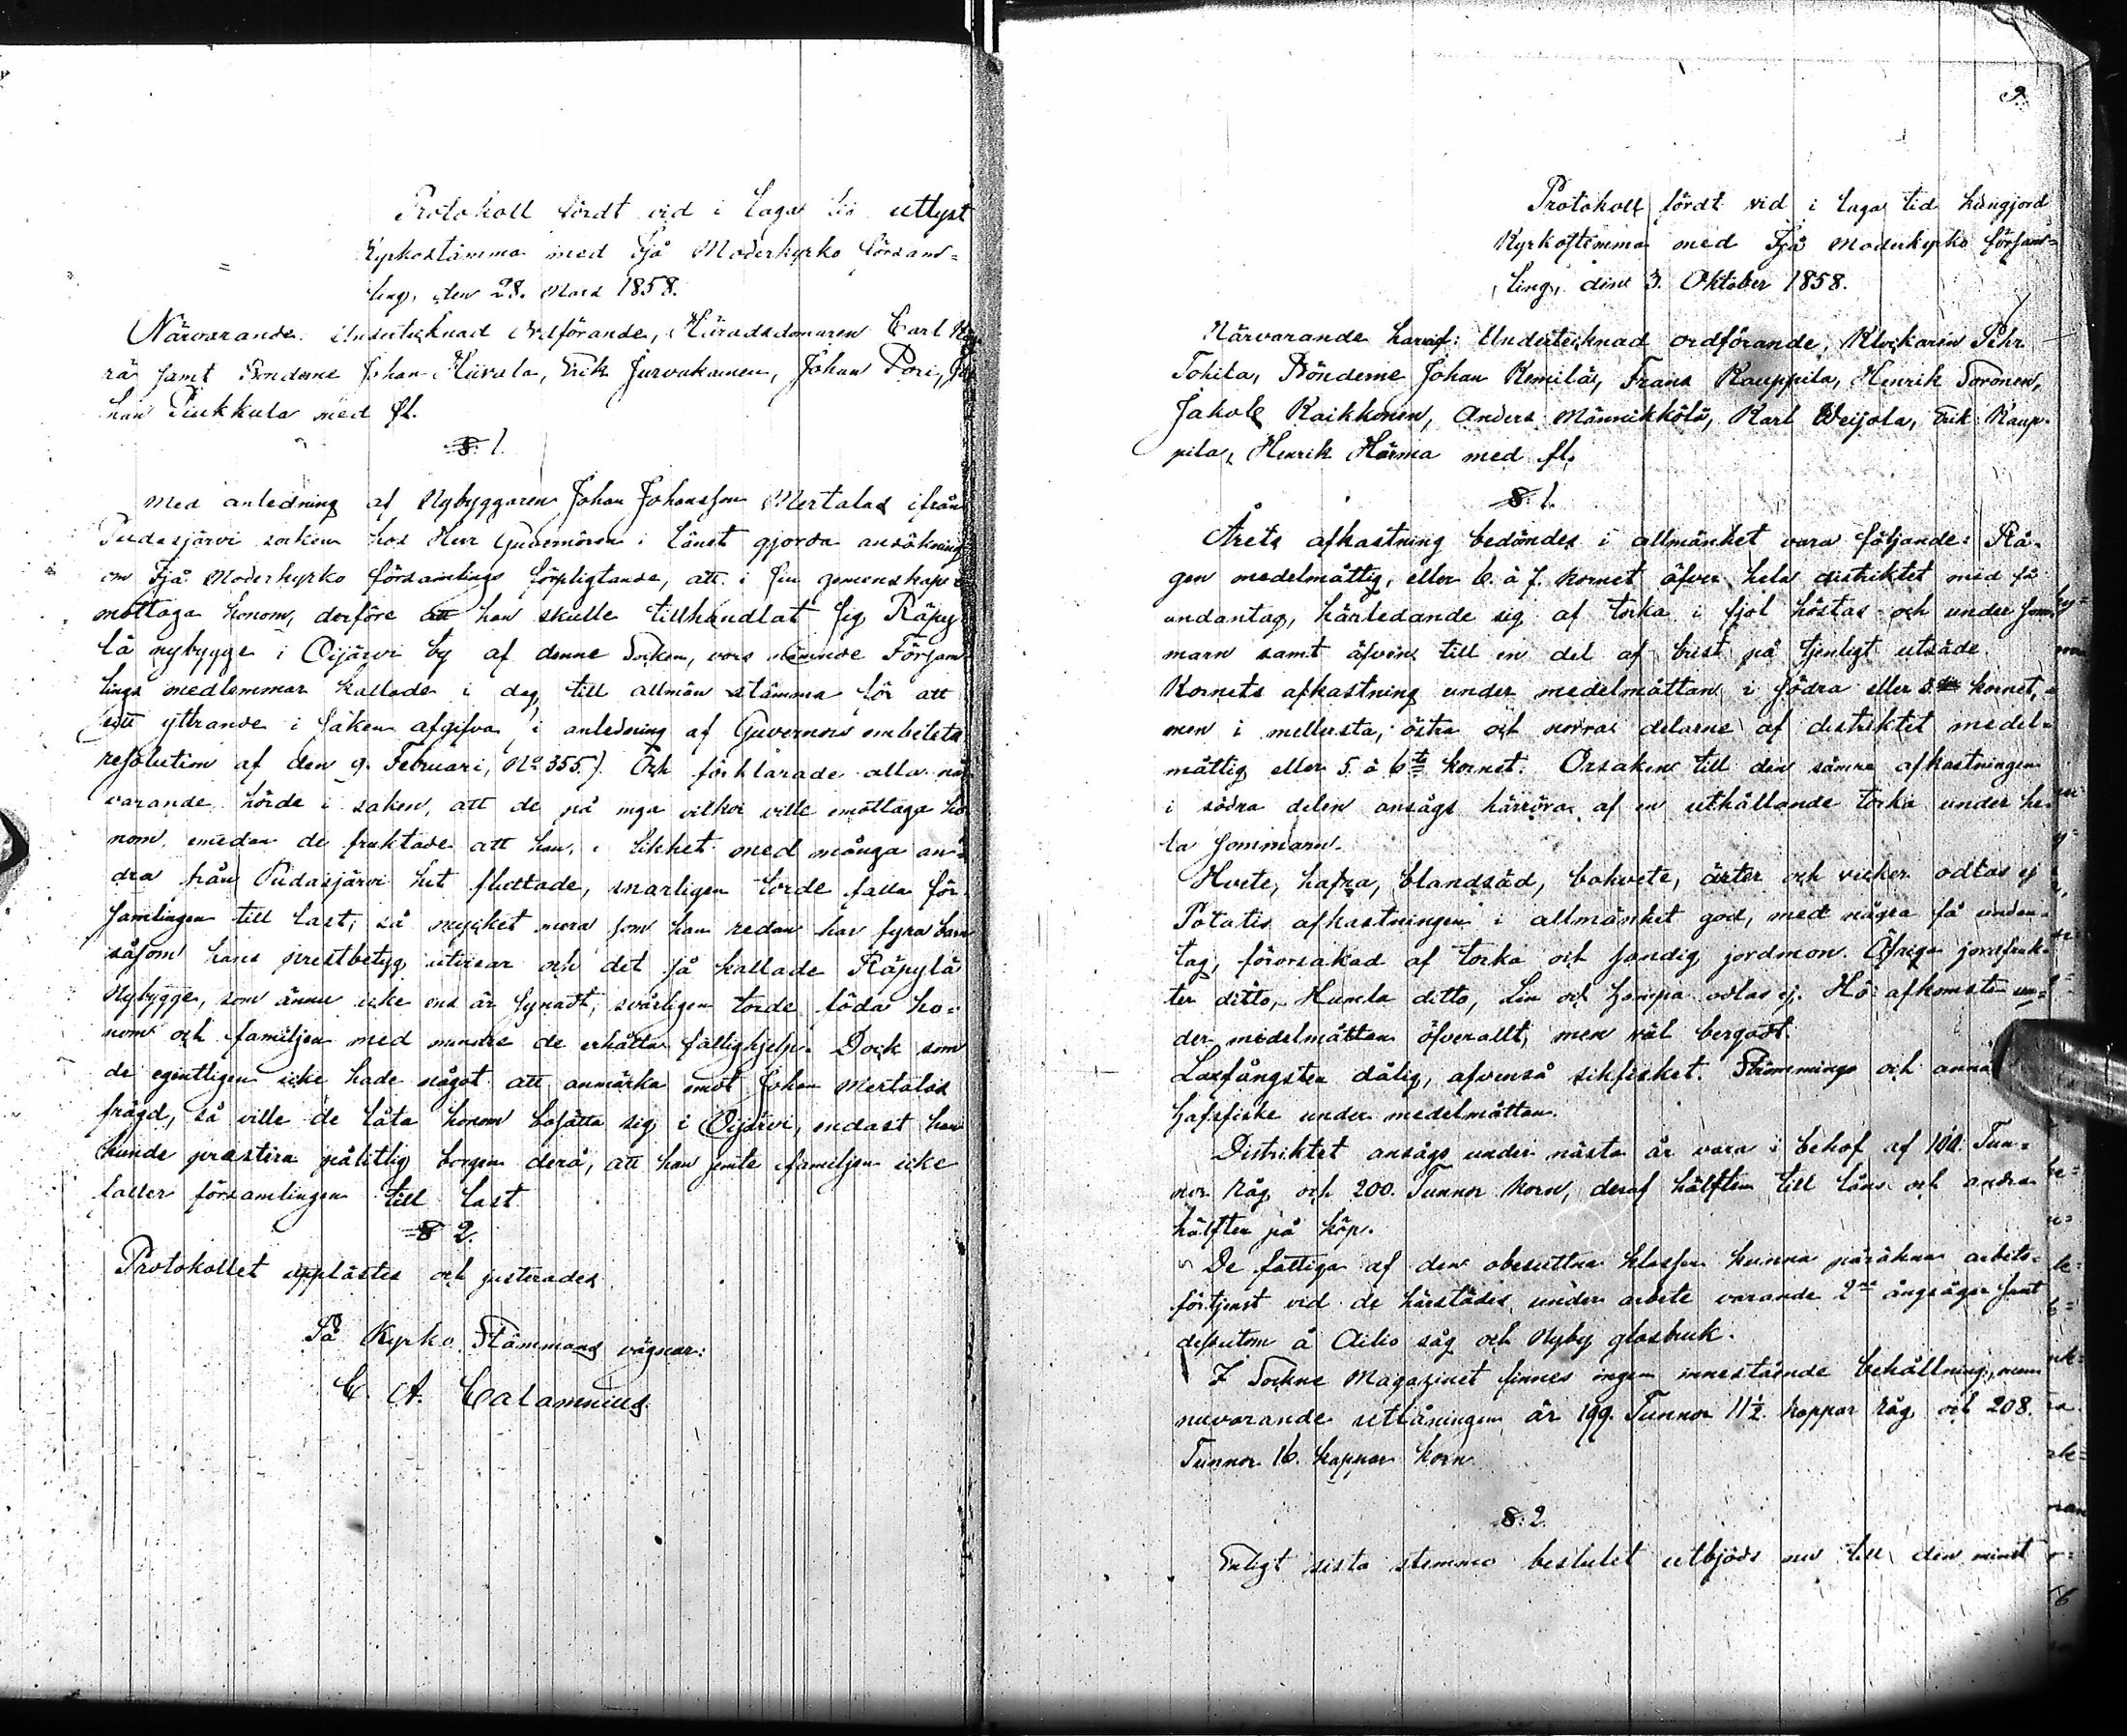 Protokoll fördt vid i laga tid utlyst
Kyrkostämma med Ijå Moderkyrko försam=
ling, den 28. Mars 1858.
Närvarande. Undertecknad Ordförande, Häradsdomaren Carl
rä samt Bönderne Johan Hiivala, Erik Jurvakainen, Johan Pori, Jo
han Puukkula med fl.
§ 1.
Med anledning af Nybyggaren Johan Johansson Mertalas ifrån
Pudasjärvi socken hos Herr Guvernören i Länet gjorda ansökning
om Ijå Moderkyrko församlings förpligtande, att i sin gemenskap
mottaga honom, derföre att han skulle tillhandlat sig Räpy
lä nybygge i Oijärvi by af denne Socken, voro nämnde Försam
lings medlemmar kallade i dag till allmän stämma för att
sitt yttrande i saken afgifva i anledning af Guvernörs embetets
resolution af den 9. Februari, No 355.) Och förklarade alla när
varande hörde i saken, att de på inga vilkor ville emottaga ho
nom, emedan de fruktade att han, i likhet med många an=
dra från Pudasjärvi hit flyttade, snarligen torde falla för
samlingen till last, så mycket mera som han redan har fyra barn
såsom hans prestbetyg utvisar och det så kallade Räpylä
Nybygge, som ännu icke ens är synadt, svårligen torde föda ho=
nom och familjen med mindre de erhålla fattighjelp. Dock som
de egentligen icke hade något att anmärka emot Johan Mertalas
frägd, så ville de låta honom bosätta sig i Oijärvi, endast han
kunde prestera pålitlig borgen derå, att han jemte familjen icke
faller församlingen till last.
§ 2.
Protokollet upplästes och justerades.
På Kyrko Stämmans vägnar:
C. A. Calamnius.
9.
Protokoll fördt vid i laga tid kungjord
Kyrkostämma med Ijå Moderkyrko försam=
ling, den 3. Oktober 1858.
Närvarande härvid: Undertecknad ordförande, Klockaren Pehr
Tohila, Bönderne Johan Kemilä, Frans Kauppila, Henrik Toronen,
Jakob Kaikkonen, Anders Männikkölä, Karl Weijola, Erik Kaup-
pila, Henrik Härma med fl.
§. 1.
Årets afkastning bedömdes i allmänhet vara följande: Rå-
gen medelmåttig, eller 6. à 7. kornet öfver hela distriktet med få
undantag, härledande sig af torka i fjol höstas och under som
marn samt äfven till en del af brist på tjenligt utsäde.
Kornets afkastning under medelmåttan i södra eller 3. kornet,
men i mellersta, östra och norra delarne af distriktet medel-
måttig eller 5. à 6te kornet. Orsaken till den sämre afkastningen
i södra delen ansågs härröra af en uthållande torka under he-
la sommarn.
Hvete, hafra, blandsäd, bohvete, ärter och vicker odlas ej
Potatis afkastningen i allmänhet god, med några få undan-
tag, förorsakad af torka och sandig jordmon. Öfrige jordfruk-
ter ditto, Humla ditto, Lin och hampa odlas ej. Hö afkomsten un=
der medelmåttan öfverallt, men väl bergadt.
Laxfångsten dålig, afvenså sikfisket. Strömmings och anna
hafsfiske under medelmåttan.
Distriktet ansågs under nästa år vara i behof af 100. Tun=
nor Råg och 200. Tunnor Korn, deraf hälften till låns och andra
hälften på köp.
De fattiga af den obesuttna klassen kunna påräkna arbets-
förtjenst vid de härstädes under arbete varande 2ne ångsågar samt
dessutom å Ailio såg och Nyby glasbruk.
I Sockne Magazinet finnes ingen innestående behållning, men
nuvarande utlåningen är 199. Tunnor 11½ kappar Råg och 208.
Tunnor 16. kappar korn.
§. 2.
Enligt sista stemmo beslutet utbjöds nu till den minst